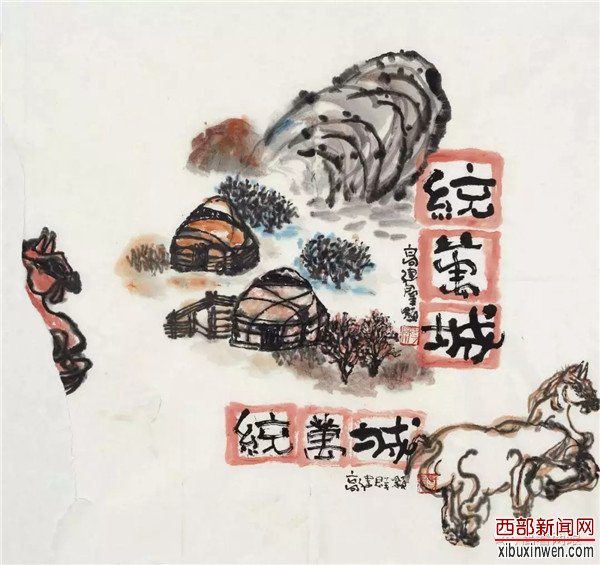 統
萬
城
高建群題
統萬城
高建群題
西部新闻网
xibuxinwen.com